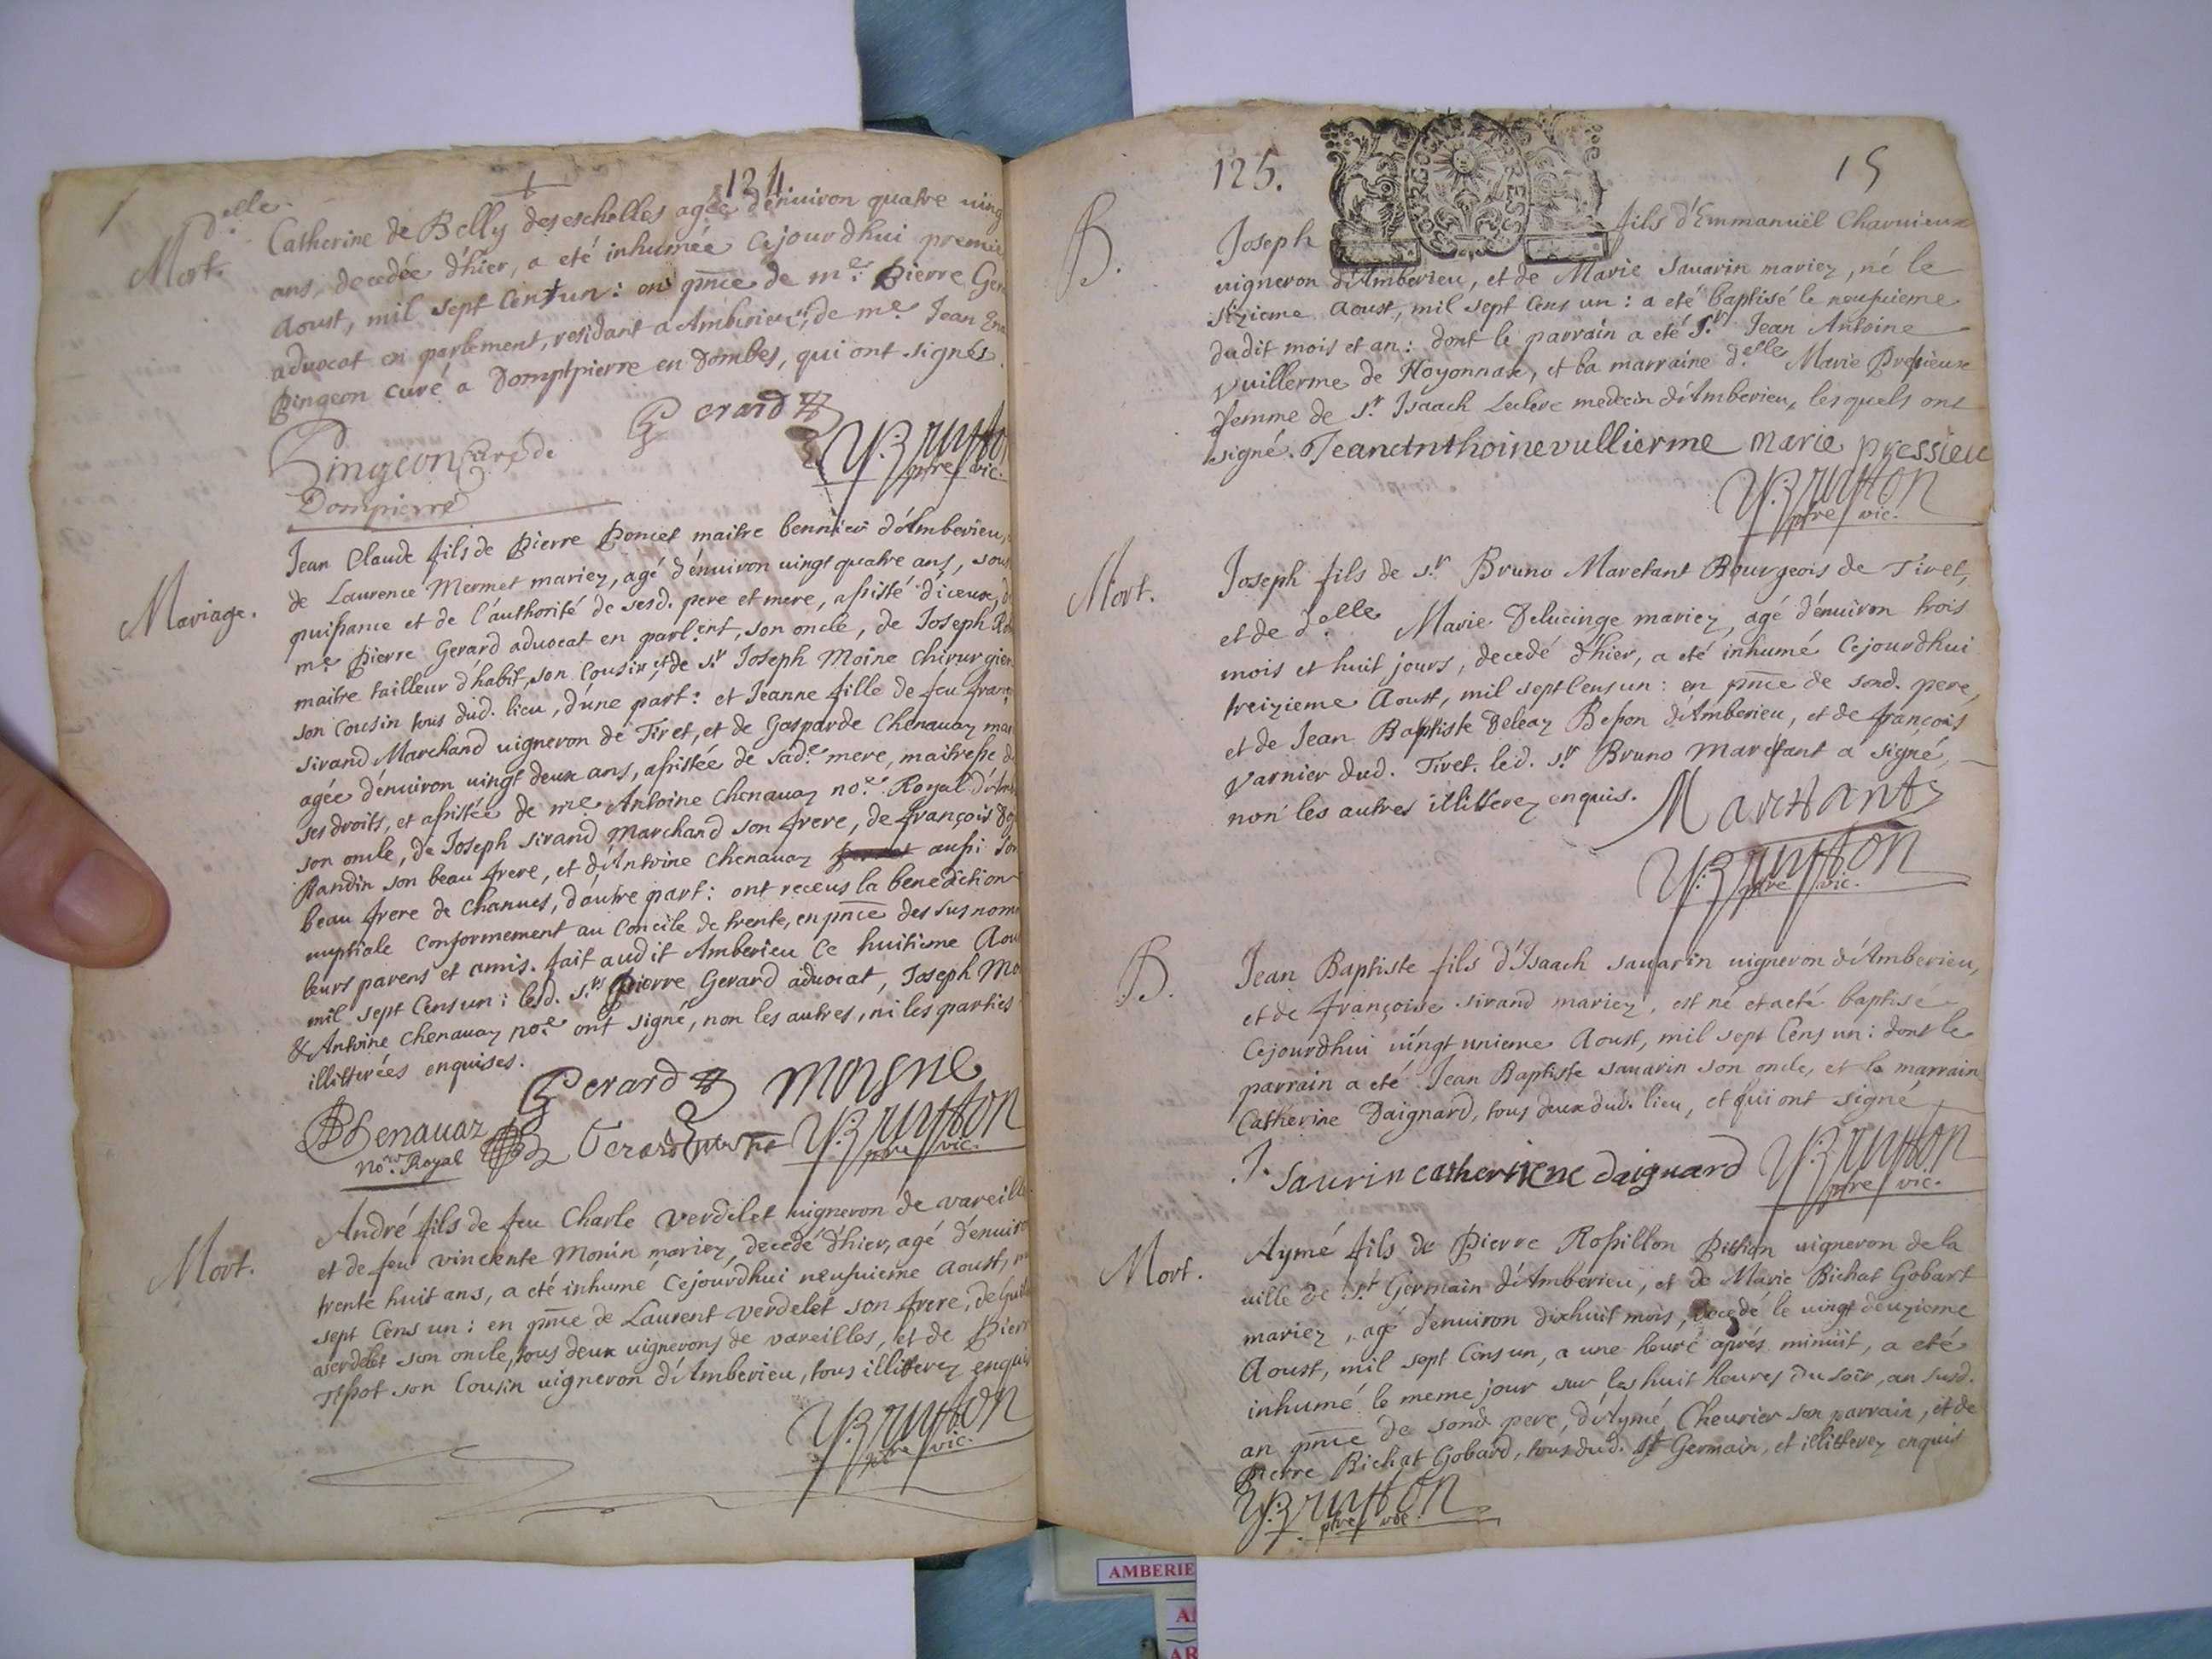 124
Mort.
D.elle
Catherine de Belly des eschelles agée d'enuiron quatre uing
ans, decedée d'hier, a eté inhumée Cejourdhui premie
Aoust, mil sept Cens un: en pnce de me. Pierre Ger
aduocat en parlement, residant a Amberieu, de me. Jean
Pingeon curé a Domptpierre en Dombes, qui ont signés
Pingeon Curé de
Dompierre
Gerard
pbre vic.
Mariage.
Jean Claude fils de Pierre Poncet maitre bennier d'Amberieu,
de Laurence Mermet mariez, agé d'enuiron uingt quatre ans, sous
puissance et de l'authorité de sesd. pere et mere, assisté d'iceux, d
me Pierre Gerard aduocat en parl.ent, son oncle, de Joseph
maitre tailleur d'habit, son Cousin, et de sr. Joseph Moine chirurgien
son Cousin tous dud. lieu, d'une part: et Jeanne fille de feu franç
Sirand Marchand uigneron de Tiret, et de Gasparde Chenauaz mar
agée d'enuiron uingt deux ans, assistée de sad.e mere, maitresse d
ses droits, et assistée de me Antoine Chenauaz no.re Royal d'Am
son oncle, de Joseph Sirand Marchand son frere, de françois
Bandin son beau frere, et d'Antoine Chenauaz aussi son
beau frere de Chanues, d'autre part: ont receus la benediction
nuptiale Conformement au Concile de trente, en pnce des sus nom
leurs parens et amis. fait audit Amberieu Ce huitieme Aou
mil sept Cens un: lesd. srs. Pierre Gerard aduocat, Joseph Mo
& Antoine Chenauaz no.re ont signé, non les autres, ni les parties
illitterées enquises.
Gerard Moyne
Chenauaz
no.re Royal
pbre vic.
Mort.
André fils de feu Charle Verdelet uigneron de vareille
et de feu vincente Monin mariez, decedé d'hier, agé d'enuiro
trente huit ans, a eté inhumé Cejourdhui neufuieme Aoust, m
sept Cens un: en pnce de Laurent Verdelet son frere, de Guill
uerdelet son oncle, tous deux uignerons de vareilles, et de Pierr
Tissot son Cousin uigneron d'Amberieu, tous illitterez enquis
pbre vic.
125.
15
B.
Joseph fils d'Emmanuël Charuieux
uigneron d'Amberieu, et de Marie Sauarin mariez, né le
sizieme Aoust, mil sept Cens un: a eté baptisé le neufuieme
dudit mois et an: dont le parrain a eté sr. Jean Antoine
Vuillerme de Noyonnax, et la marraine d.elle Marie Pressieux
femme de sr. Isaach Leclerc medecin d'Amberieu, lesquels ont
signé. Jean Anthoine vullierme marie pressieu
pbre vic.
Mort.
Joseph fils de sr. Bruno Marchant Bourgeois de Tiret,
et de d.elle Marie Delucinge mariez, agé d'enuiron trois
mois et huit jours, decedé d'hier, a eté inhumé Cejourdhui
treizieme Aoust, mil sept Cens un: en pnce de sond. pere,
et de Jean Baptiste Deleaz Besson d'Amberieu, et de françois
Varnier dud. Tiret. led. sr. Bruno Marchant a signé,
non les autres illitterez enquis.
Marchant
pbre vic.
B.
Jean Baptiste fils d'Isaach Sauarin uigneron d'Amberieu,
et de françoise Sirand mariez, est né et a eté baptisé
Cejourdhui uingt unieme Aoust, mil sept Cens un: dont le
parrain a eté Jean Baptiste Sauarin son oncle, et la marraine
Catherine Daignard, tous deux dud. lieu, et qui ont signé
J. Saurin catherine daignard
pbre vic.
Mort.
Aymé fils de Pierre Rossillon Pittion uigneron de la
uille de St Germain d'Amberieu, et de Marie Bichat Gobart
mariez, agé d'enuiron dixhuit mois, decedé le uingt deuzieme
Aoust, mil sept Cens un, a une heure aprés minuit, a eté
inhumé le meme jour sur les huit heures du soir, an susd.
an pnce de sond. pere, d'Aymé Cheurier son parrain, et de
Pierre Bichat Gobard, tous dud. St Germain, et illitterez enquis
pbre vic.
AMBERIE